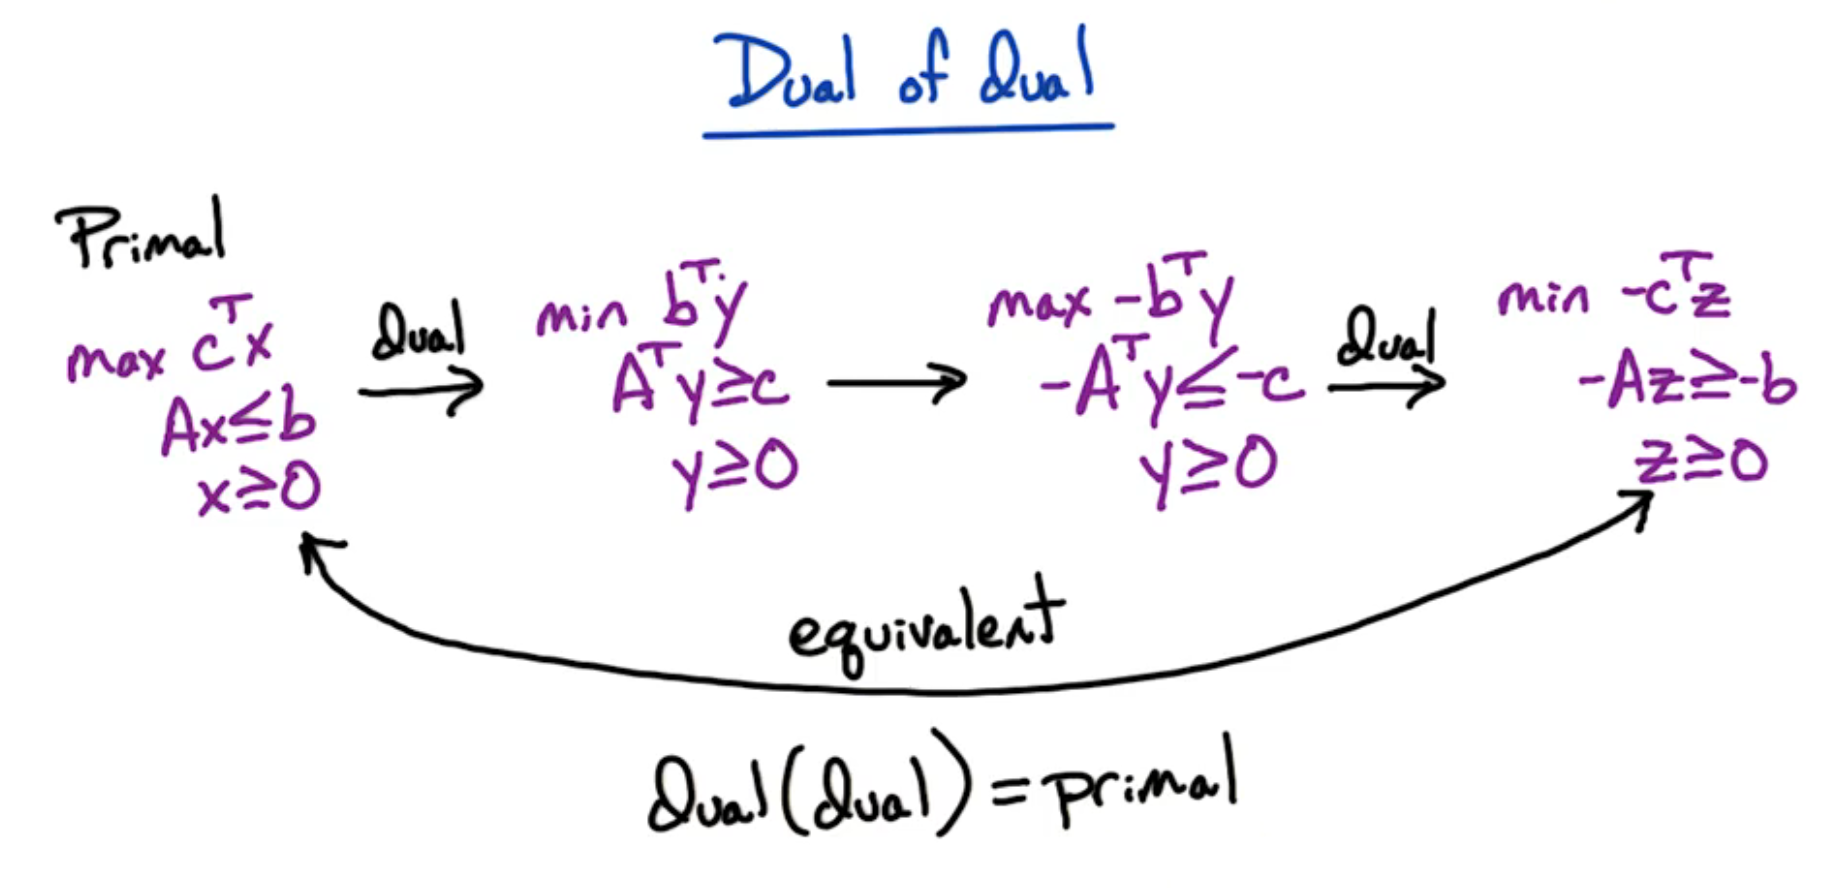 Dual of dual
Primal
max cᵀx
Ax≤b
x≥0
dual
min bᵀy
Aᵀy≥c
y≥0
max -bᵀy
-Aᵀy≤-c
y≥0
dual
min -cᵀz
-Az≥-b
z≥0
equivalent
Dual(dual)=primal